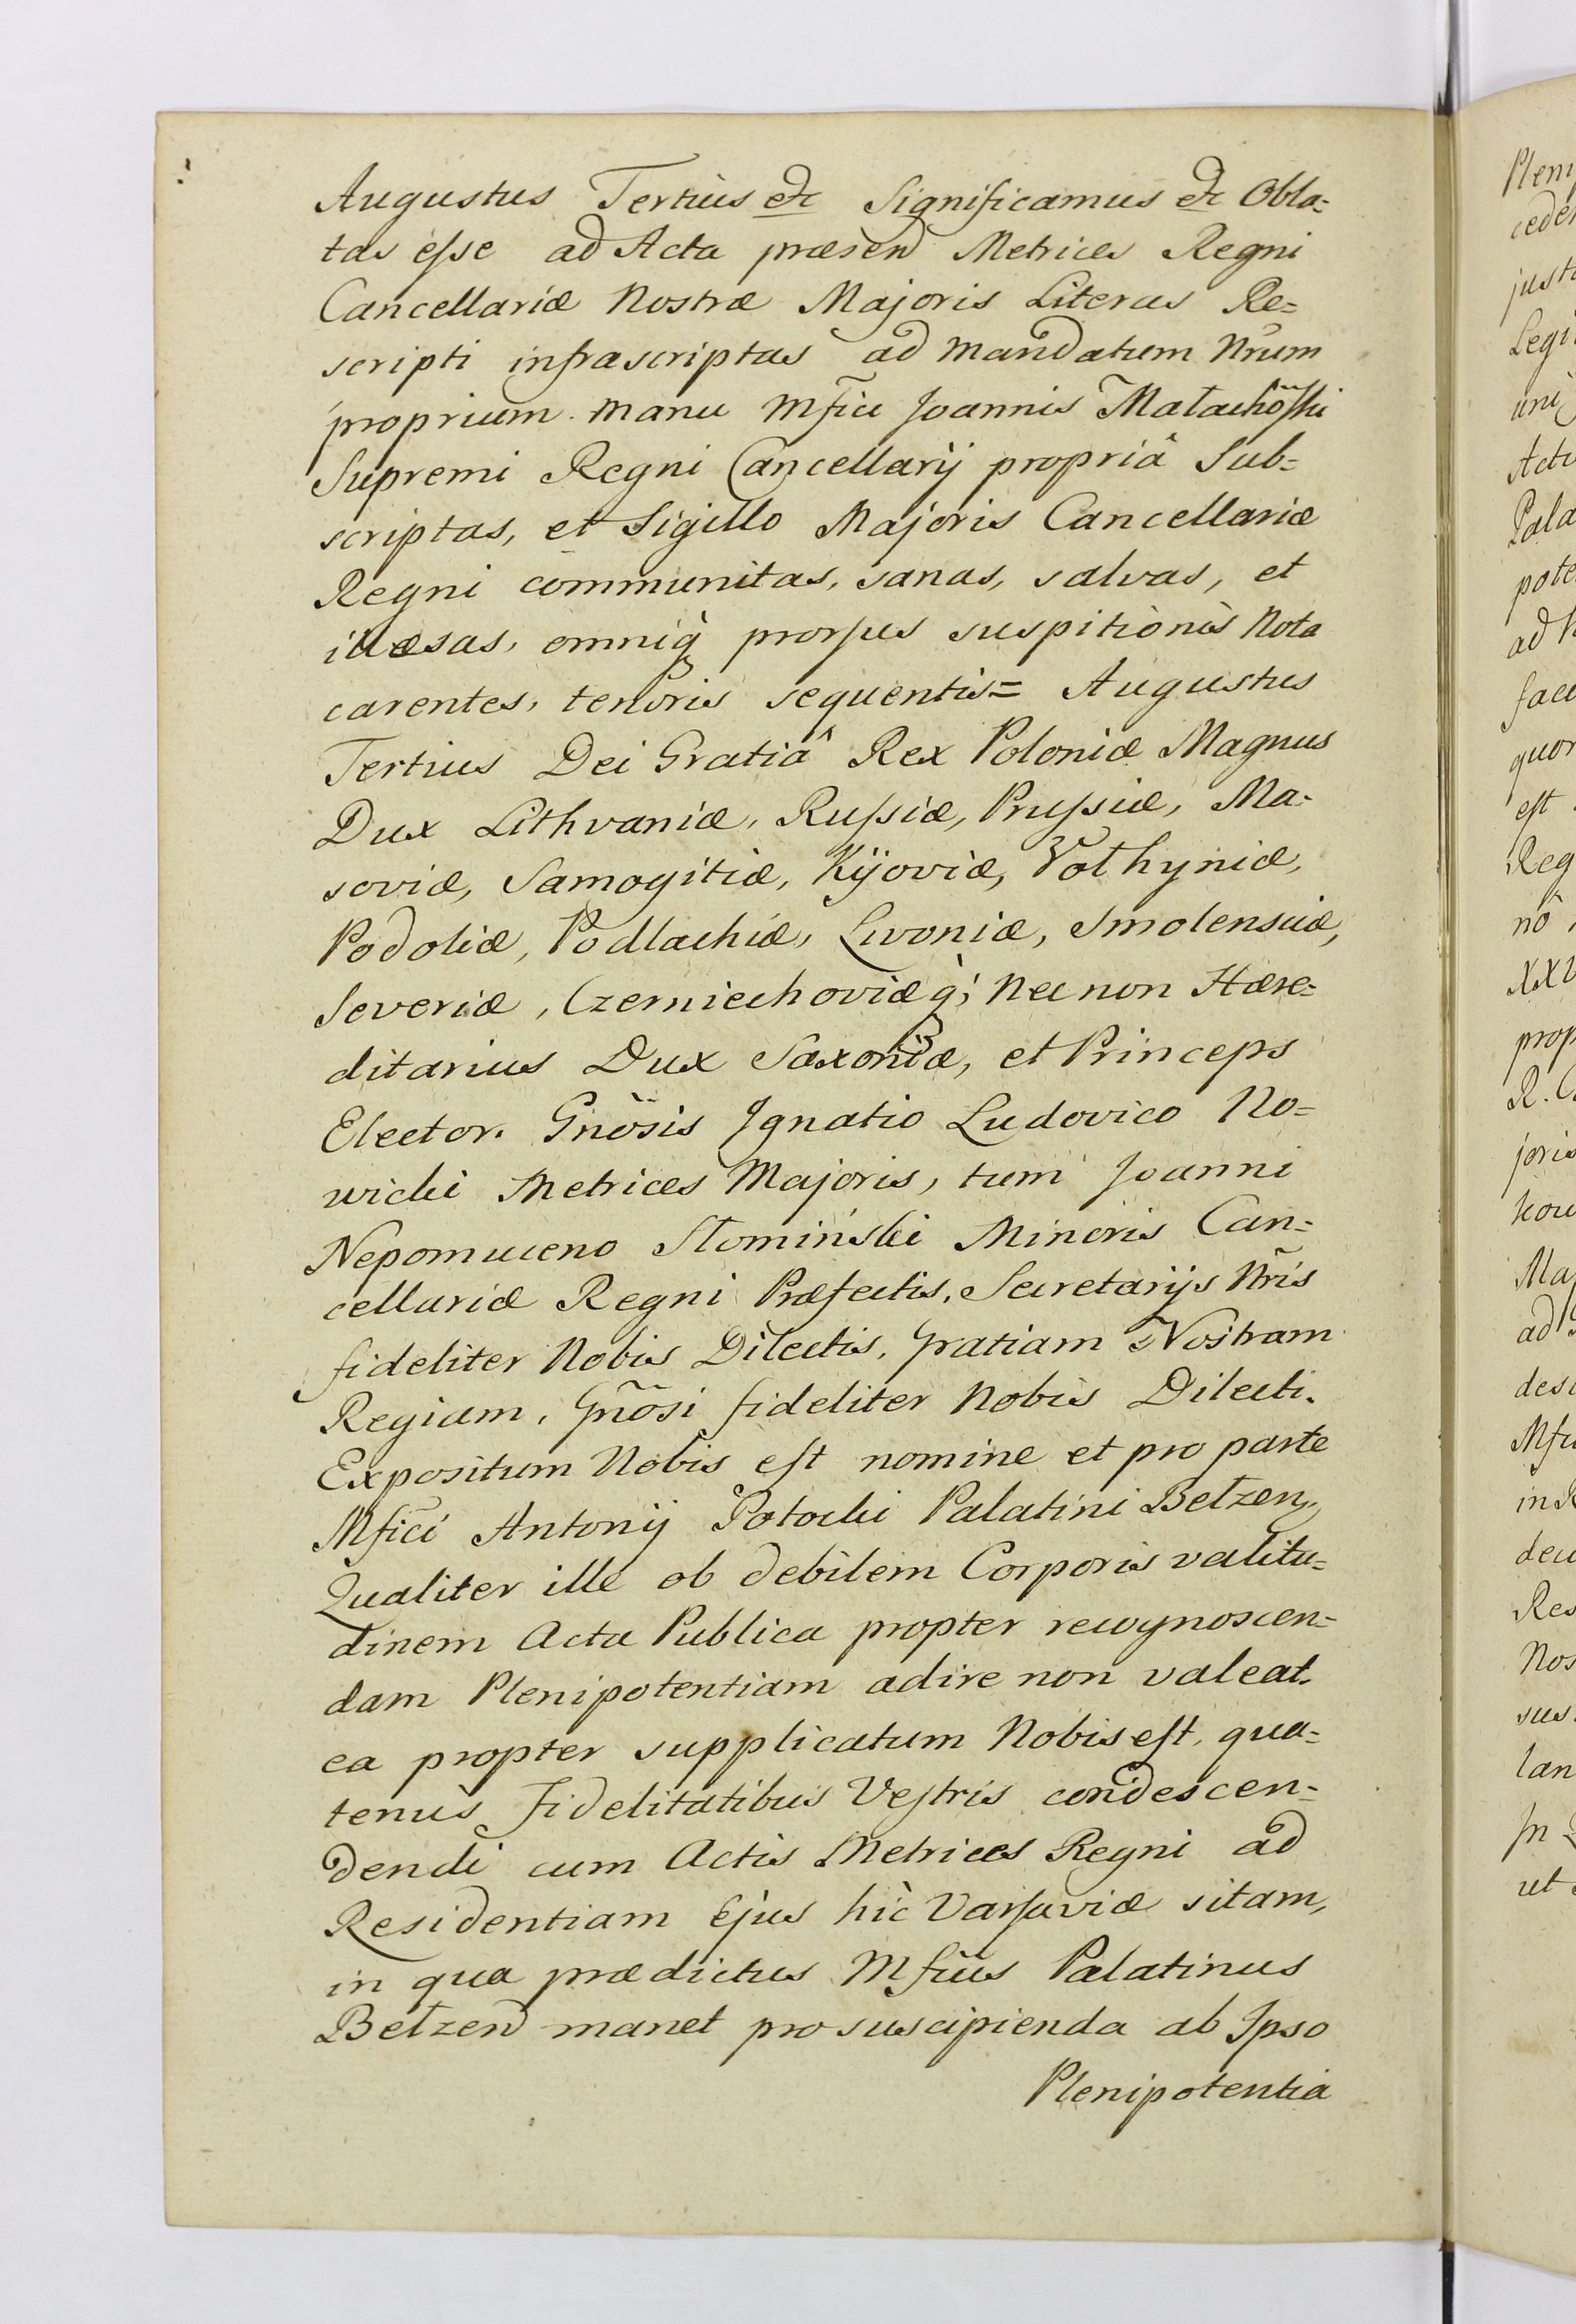 Augustus Tertius etc Significamus etc Obla=
tas eſse ad Acta præsen Metrices Regni
Cancellariæ Nostræ Majoris Literas Re=
scripti infrascriptas ad Mandatum Nrũm
proprium manu Mfĩci Joannis Małachõſki
Supremi Regni Cancellarij propriâ Sub=
scriptas, et Sigillo Majoris Cancellariæ
Regni communitas, sanas, salvas, et
illæsas, omniq̀ꝫ prorſus suspitionis Nota
carentes, tenoris sequentis= Augustus
Tertius Dei Gratiâ Rex Poloniæ Magnus
Dux Lithvaniæ, Ruſsiæ, Pruſsiæ, Ma=
soviæ, Samogitiæ, Kijoviæ, Volhyniæ,
Podoliæ, Podlachiæ, Livoniæ, Smolensciæ,
Severiæ, Czerniechoviæq̀ꝫ; Nec non Hære=
ditarius Dux Saxoniæ, et Princeps
Elector. Gnõsis Ignatio Ludovico No=
wicki Metrices Majoris, tum Joanni
Nepomuceno Słomiński Minoris Can=
cellariæ Regni Præfectis, Secretarijs Nrĩs
fideliter Nobis Dilectis, Gratiam Nostram
Regiam, Gnõsi fideliter Nobis Dilecti.
Expositum Nobis eſt nomine et pro parte
Mfĩci Antonij Potocki Palatini Bełzen,
Qualiter ille ob debilem Corporis valitu=
dinem Acta Publica propter recognoscen=
dam Plenipotentiam adire non valeat.
ea propter supplicatum Nobis eſt, qua=
tenus Fidelitatibus Veſtris condescen=
dendi cum Actis Metrices Regni ad
Residentiam Ejus hìc Varſaviæ sitam,
in qua prædictus Mfĩcus Palatinus
Bełzen manet pro suscipienda ab Ipso
Plenipotentia